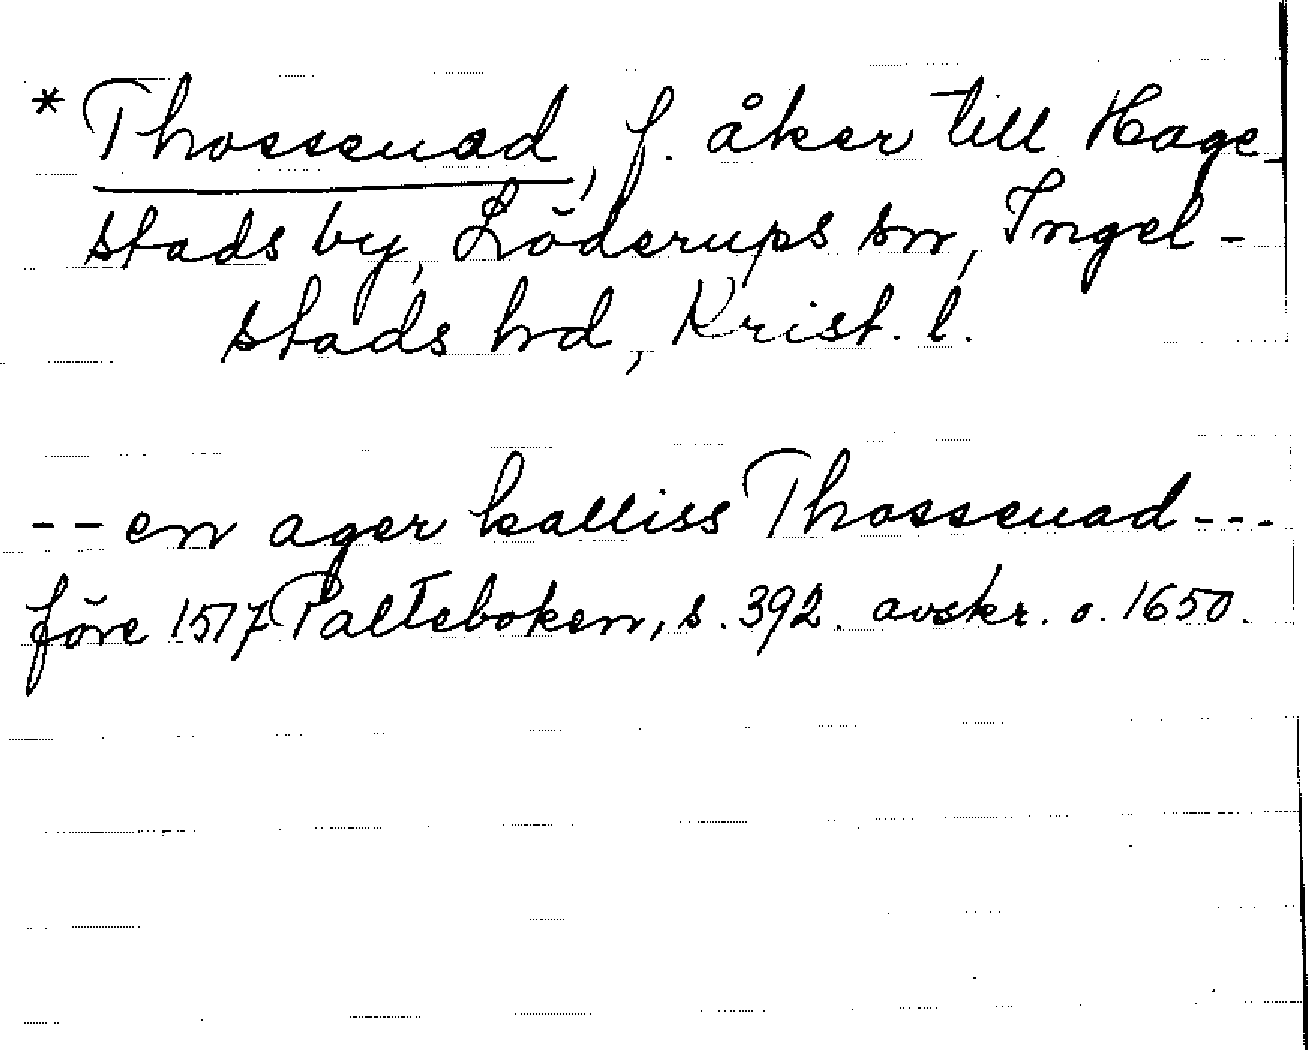 * Thossenad, f. åker till Hage-
stads by, Löderups sn, Ingel-
stads hd, Krist. l.
-- en ager kalliss Thossenad ---
före 1517 Palteboken, s. 392. avskr. o. 1650.